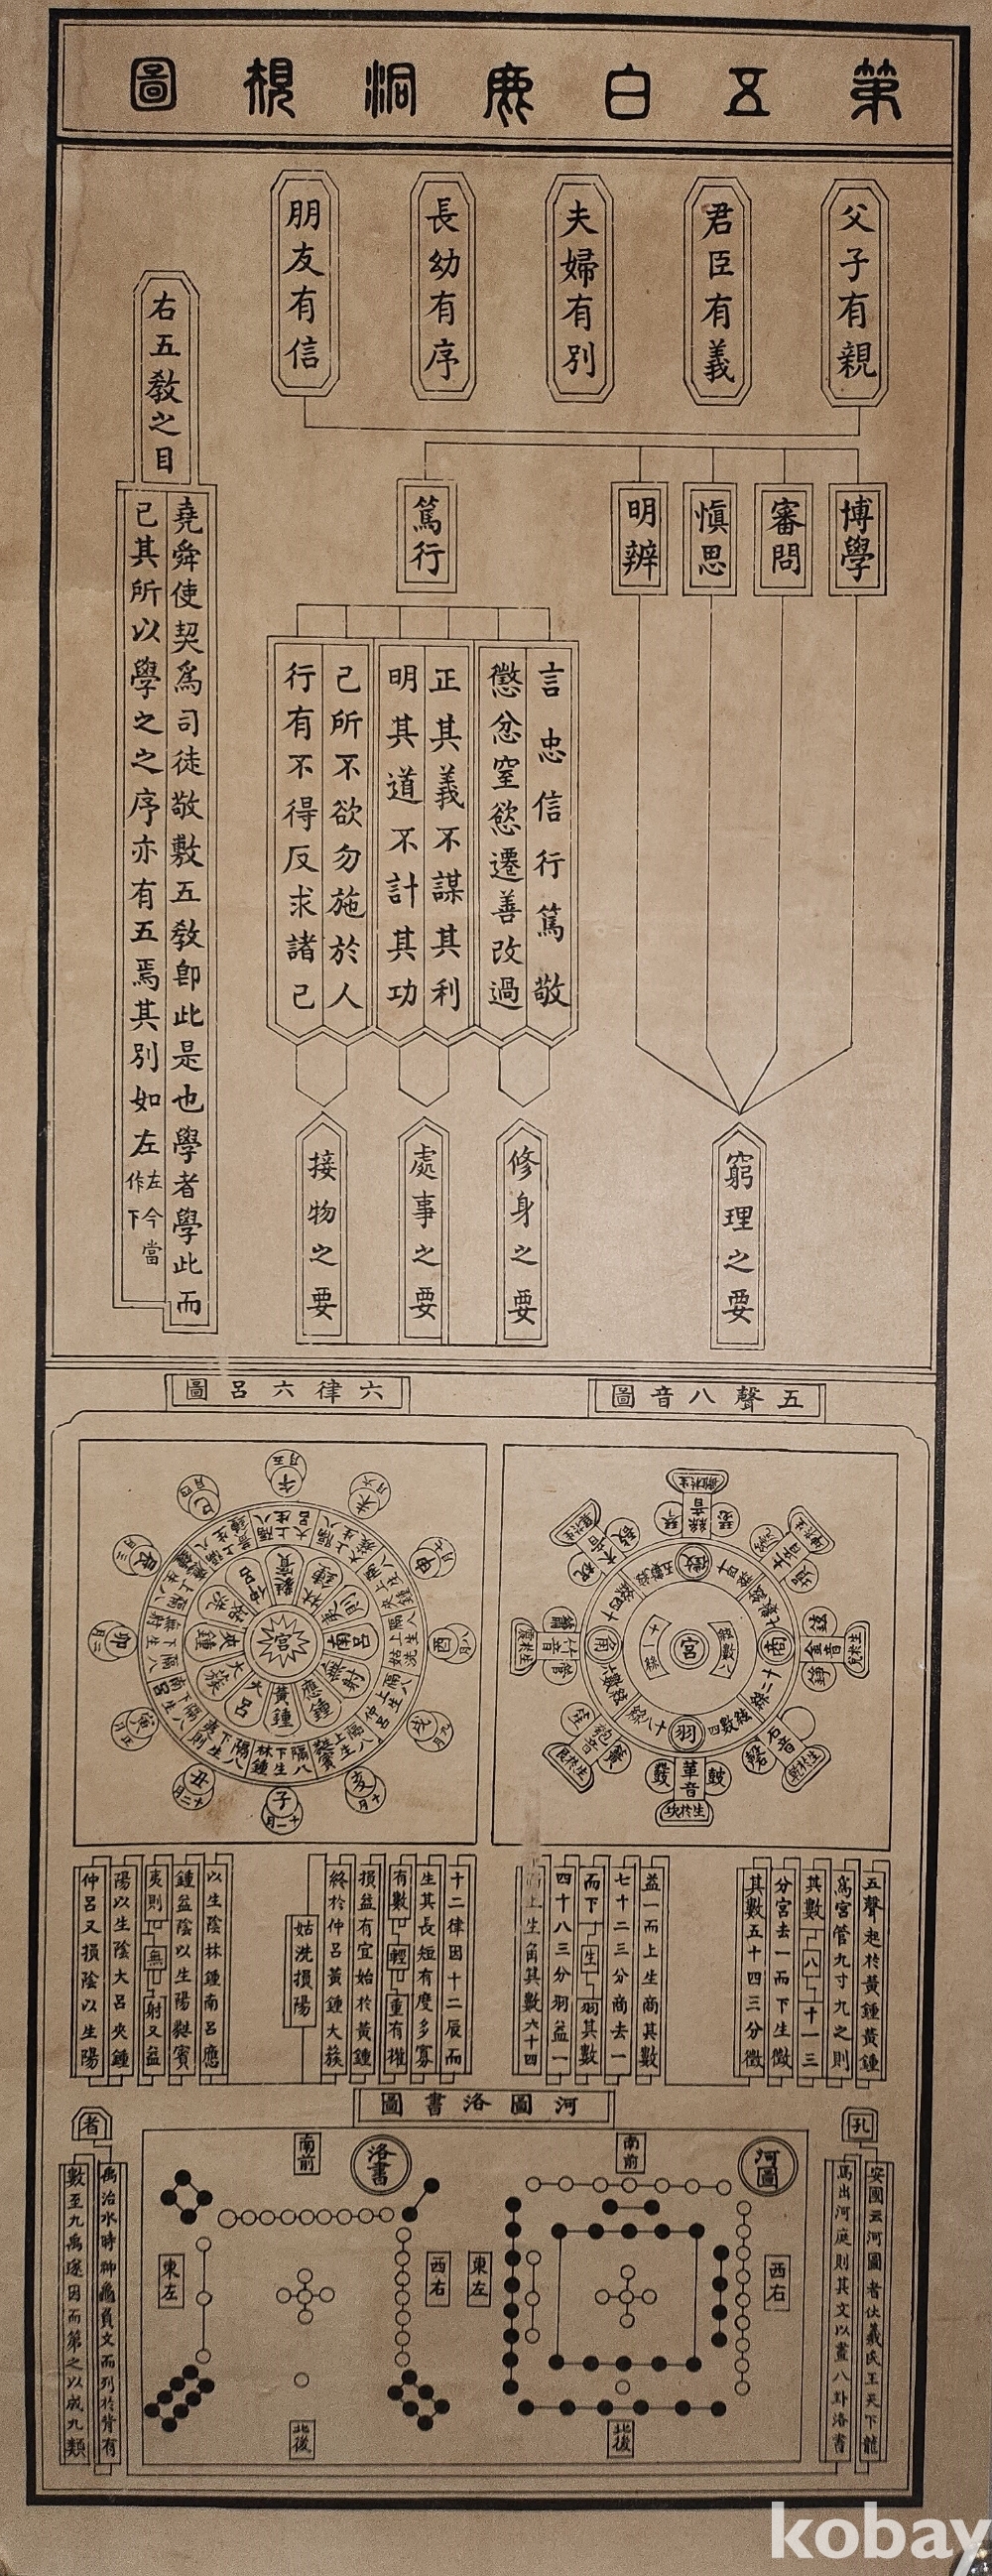 第五白鹿洞規圖
父子有親
君臣有義
夫婦有別
長幼有序
朋友有信
右五敎之目
堯舜使契爲司徒敬敷五敎卽此是也學者學此而
已其所以學之之序亦有五焉其別如左
左今當
作下
博學
審問
愼思
明辨
篤行
言忠信行篤敬
懲忿窒慾遷善改過
正其義不謀其利
明其道不計其功
己所不欲勿施於人
行有不得反求諸己
窮理之要
修身之要
處事之要
接物之要
五聲八音圖
六律六呂圖
宮
徵
商
羽
角
絲音
土音
金音
石音
革音
匏音
竹音
木音
宮
黃鍾
大呂
太簇
夾鍾
姑洗
仲呂
蕤賓
林鍾
夷則
南呂
無射
應鍾
子
十一月
丑
十二月
寅
正月
卯
二月
辰
三月
巳
四月
午
五月
未
六月
申
七月
酉
八月
戌
九月
亥
十月
五聲起於黃鍾黃鍾
爲宮管九寸九之則
其數八十一三
分宮去一而下生徵
其數五十四三分徵
益一而上生商其數
七十二三分商去一
而下生羽其數
四十八三分羽益一
而上生角其數六十四
十二律因十二辰而
生其長短有度多寡
有數輕重有權
損益有宜始於黃鍾
終於仲呂黃鍾大簇
姑洗損陽
以生陰林鍾南呂應
鍾益陰以生陽蕤賓
夷則無射又益
陽以生陰大呂夾鍾
仲呂又損陰以生陽
河圖洛書圖
孔
安國云河圖者伏羲氏王天下龍
馬出河庭則其文以畫八卦洛書
者
禹治水時神龜負文而列於背有
數至九禹遂因而第之以成九類
河圖
南前
西右
東左
北後
洛書
南前
西右
東左
北後
kobay